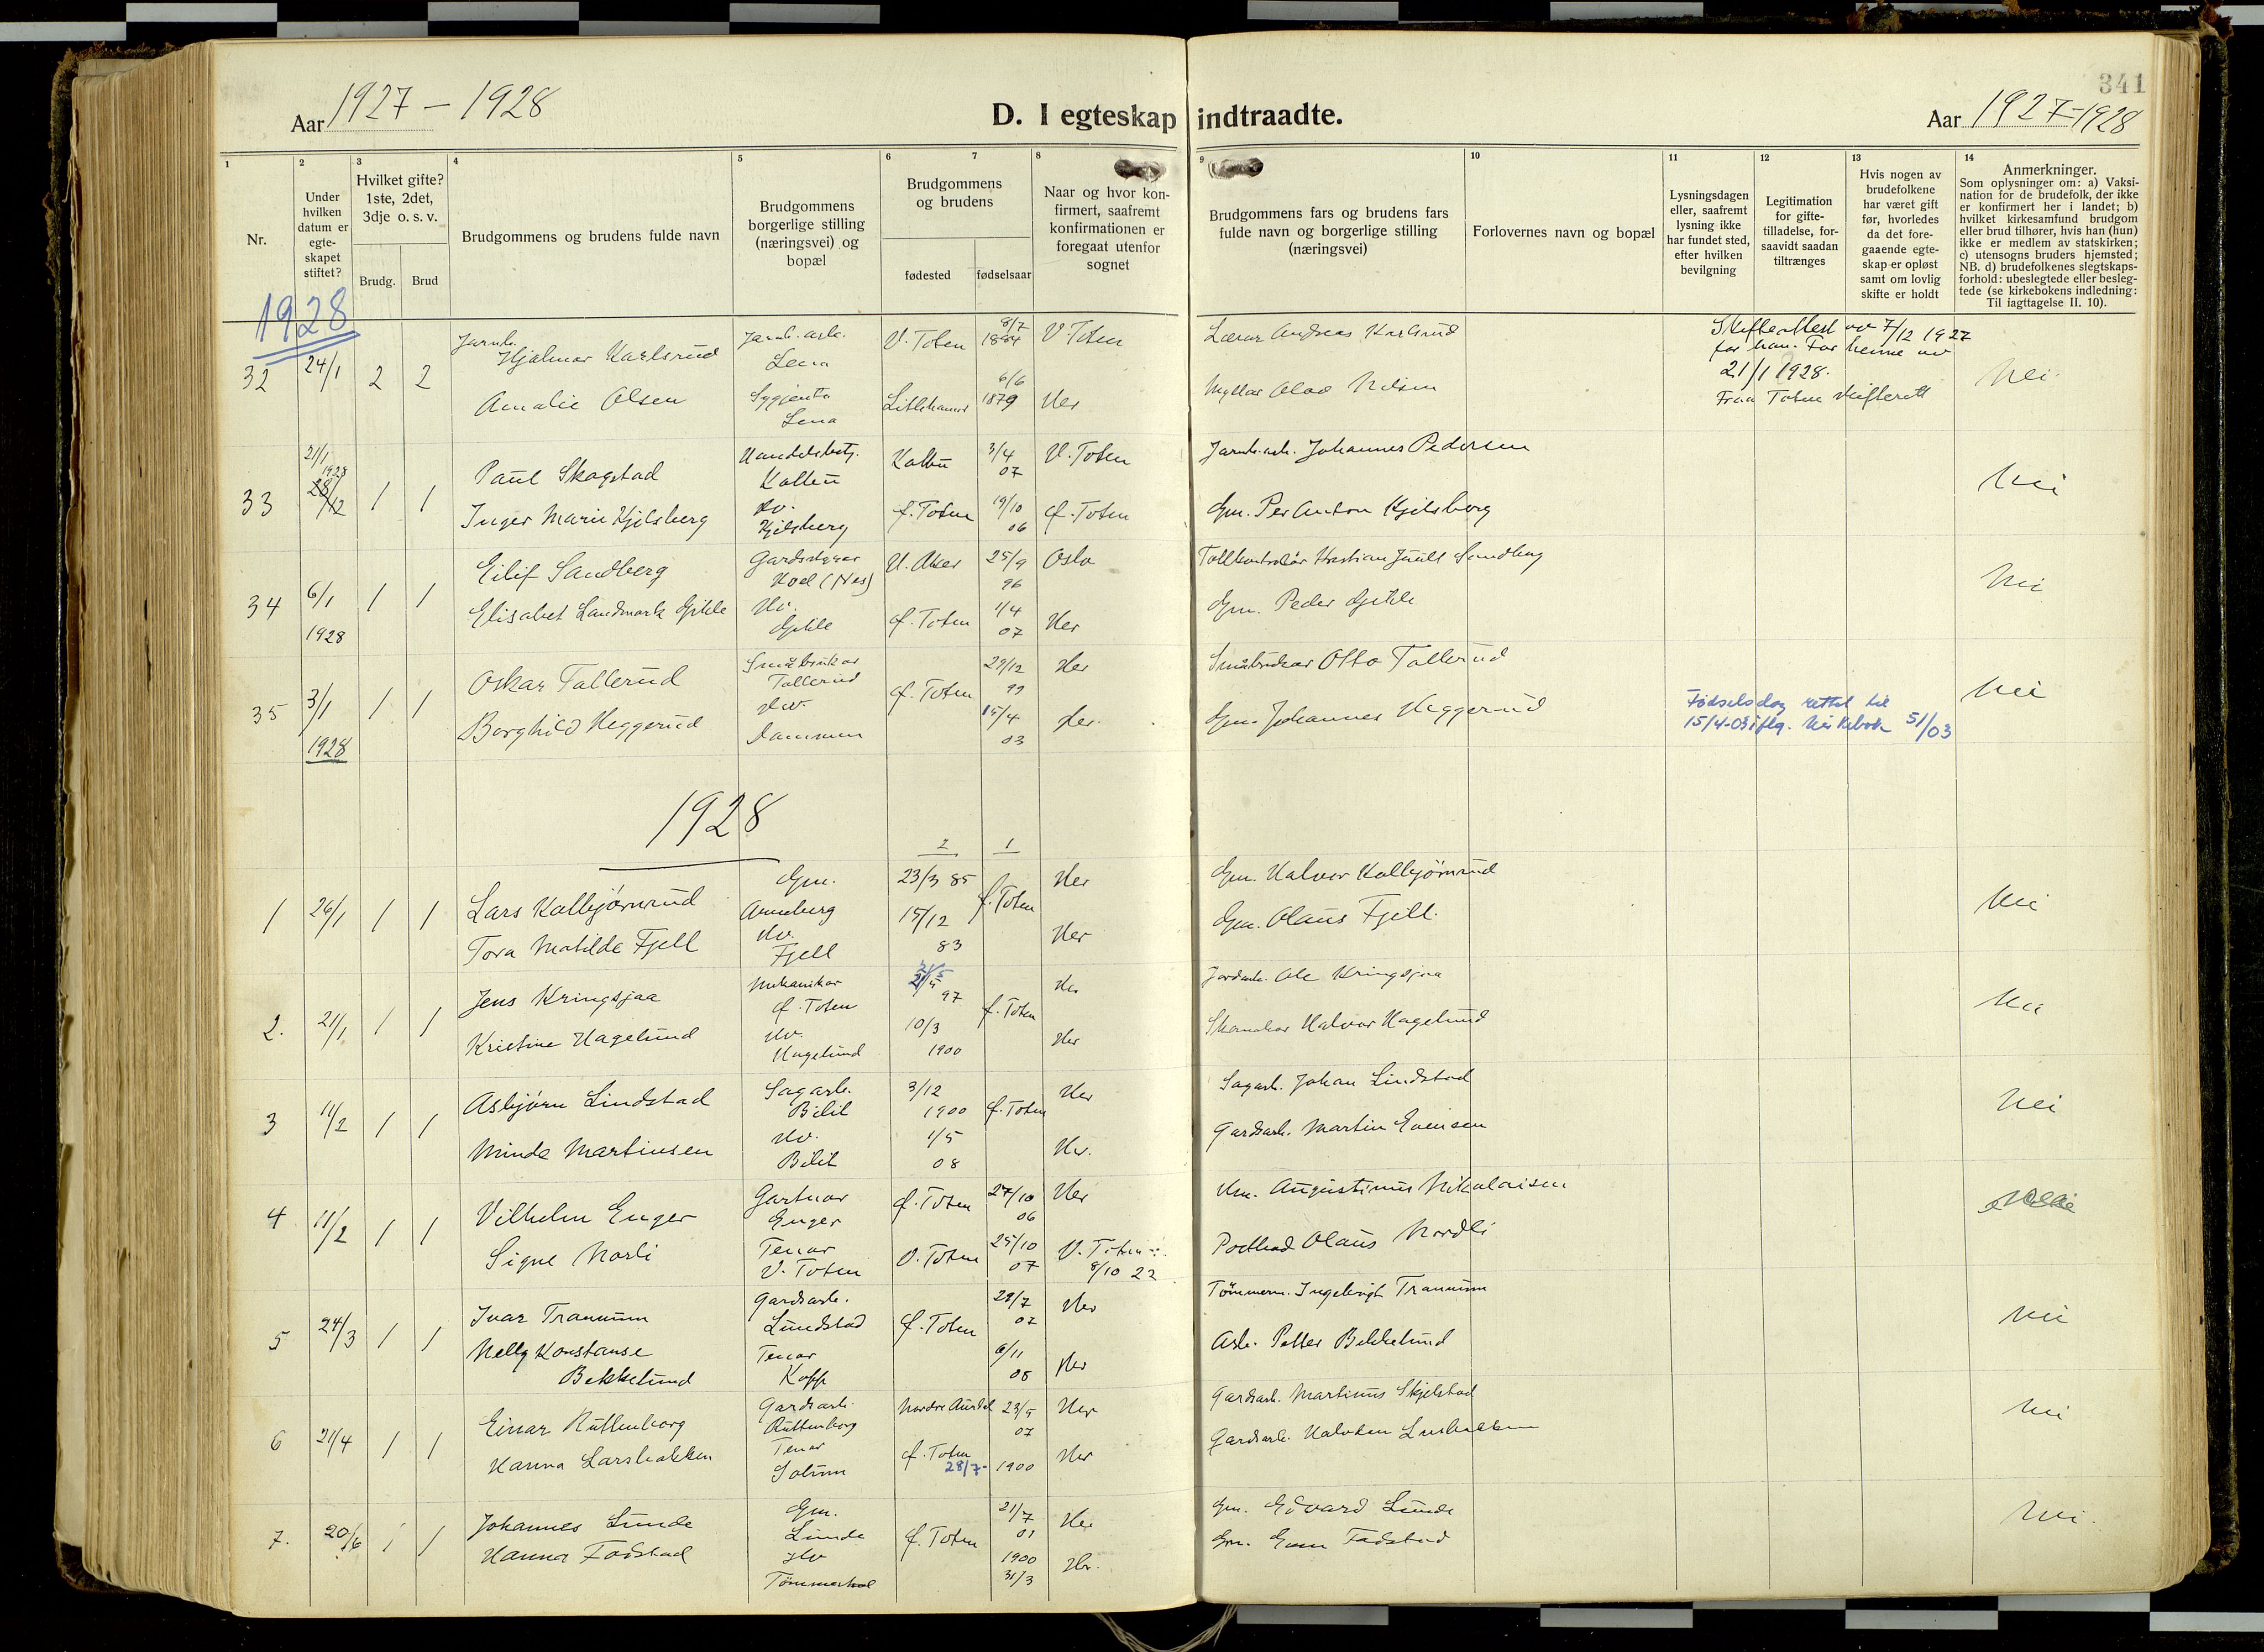 341
Aar 1927 - 1928
D. I egteskap indtraadte.
Aar 1927-1928
1 2 3 4 5 6 7 8 9 10 11 12 13 14
Nr.
Under hvilken datum er egte-skapet stiftet?
Hvilket gifte? 1ste, 2det, 3dje o. s. v.
Brudg.
Brud
Brudgommens og brudens fulde navn
Brudgommens borgerlige stilling (næringsvei) og bopæl
Brudgommens og brudens
fødested
fødselsaar
Naar og hvor kon-firmert, saafremt konfirmationen er foregaat utenfor sognet
Brudgommens fars og brudens fars fulde navn og borgerlige stilling (næringsvei)
Forlovernes navn og bopæl
Lysningsdagen eller, saafremt lysning ikke har fundet sted, efter hvilken bevilgning
Legitimation for gifte-tilladelse, for-saavidt saadan tiltrænges
Hvis nogen av brudefolkene har været gift før, hvorledes da det fore-gaaende egte-skap er opløst samt om lovlig skifte er holdt
Anmerkninger.
Som oplysninger om: a) Vaksi-nation for de brudefolk, der ikke er konfirmert her i landet; b) hvilket kirkesamfund brudgom eller brud tilhører, hvis han (hun) ikke er medlem av statskirken; c) utensogns bruders hjemsted; NB. d) brudefolkenes slegtskaps-forhold: ubeslegtede eller besleg-tede (se kirkebokens indledning: Til iagttagelse II. 10).
1928
32 24/1 2 2 Jarnb. Hjalmar Karlsrud Jarnb. arb. Lena V. Toten 8/7 1884 V. Toten Lærar Andreas Karlsrud
Skifteattest av 7/12 1927
for han. For henne av
21/1 1928.
Fraa Toten skifterett
Nei
Amalie Olsen Sygjenta Lena Lillehamer 6/6 1879 Her Myllar Olav Nilsen
33 21/1 1928 28/12 1 1 Paul Skogstad Handelsbetj. Kolbu Kolbu 3/4 07 V. Toten Jarnb. arb. Johannes Pedersen Nei
Inger Marie Kjelsberg Hv. Kjelsberg Ø. Toten 19/10 06 Ø. Toten Gm. Per Anton Kjelsberg
34 6/1 1928 1 1 Eilif Sandberg Gardseigar Hoel (Nes) V. Aker 25/9 96 Oslo Tollkontrolør Kristian Juell Sandberg Nei
Elisabet Landmark Gjikle Hv. Gjikle Ø. Toten 1/4 07 Her Gm. Peder Gjikle
35 3/1 1928 1 1 Oskar Tollerud Småbrukar Tollerud Ø. Toten 29/12 99 Her Småbrukar Otto Tollerud Nei
Borghild Heggerud Hv. Dammen 15/4 03 Her. Gm. Johannes Heggerud
Fødselsdag rettet til
15/4-03 iflg. kirkebok 51/03
1928
2 1
1 26/1 1 1 Lars Kolbjørnrud Gm. Anneberg 23/3 85 Ø. Toten Her Gm. Halvor Kolbjörnrud Nei
Tora Matilde Fjell Hv. Fjell 15/12 83 Her Gm. Olaus Fjell.
2. 21/1 1 1 Jens Kringsjaa Mekanikar Ø. Toten 21/5 97 Ø. Toten Her Jordarb. Ole Kringsjaa Nei
Kristine Hagelund Hv. Hagelund 10/3 1900 Her Skomakar Halvor Hagelund
3 11/2 1 1 Asbjørn Lindstad Sagarb. Bilit 3/12 1900 Ø. Toten Her Sagarb. Johan Lindstad Nei
Minda Martinsen Hv. Bilit 1/5 08 Her. Gardsarb. Martin Evensen
4 11/2 1 1 Vilhelm Enger Gartnar Enger Ø. Toten 27/10 06 Her Hm. Augustinus Nikolaisen
Signe Norli Tenar V. Toten V. Toten 25/10 07 V. Toten 8/10 22 Olaus Nordli
5 24/3 1 1 Ivar Tranum Gardsarb. Lundstad Ø. Toten 29/7 07 Her Tömmerm. Ingebrigt Tranum Nei
Nelly Konstanse Bekkelund Tenar Kopp 6/11 08 Her Arb. Petter Bekkelund
6 21/4 1 1 Einar Ruttenborg Gardsarb. Ruttenborg Nordre Aurdal 23/5 07 Her Gardsarb. Martinus Skjelstad Nei
Hanna Larsbakken Tenar Solum Ø. Toten 28/7- 1900 Her Gardsarb.
7. 20/6 1 1 Johannes Lunde Gm. Lunde Ø. Toten 21/7 01 Her Gm. Edvard Lunde Nei.
Hanna Fodstad Hv Tömmerhol 1900 31/3 Her. Gm. Even Fodstad